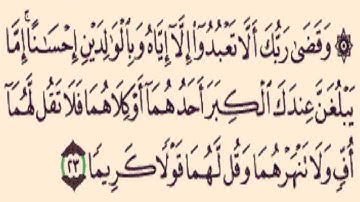 ۞ وَقَضَىٰ رَبُّكَ أَلَّا تَعْبُدُوٓا۟ إِلَّآ إِيَّاهُ وَبِٱلْوَٰلِدَيْنِ إِحْسَـٰنًا ۚ إِمَّا
يَبْلُغَنَّ عِندَكَ ٱلْكِبَرَ أَحَدُهُمَآ أَوْ كِلَاهُمَا فَلَا تَقُل لَّهُمَآ
أُفٍّ وَلَا تَنْهَرْهُمَا وَقُل لَّهُمَا قَوْلًا كَرِيمًا ٢٣